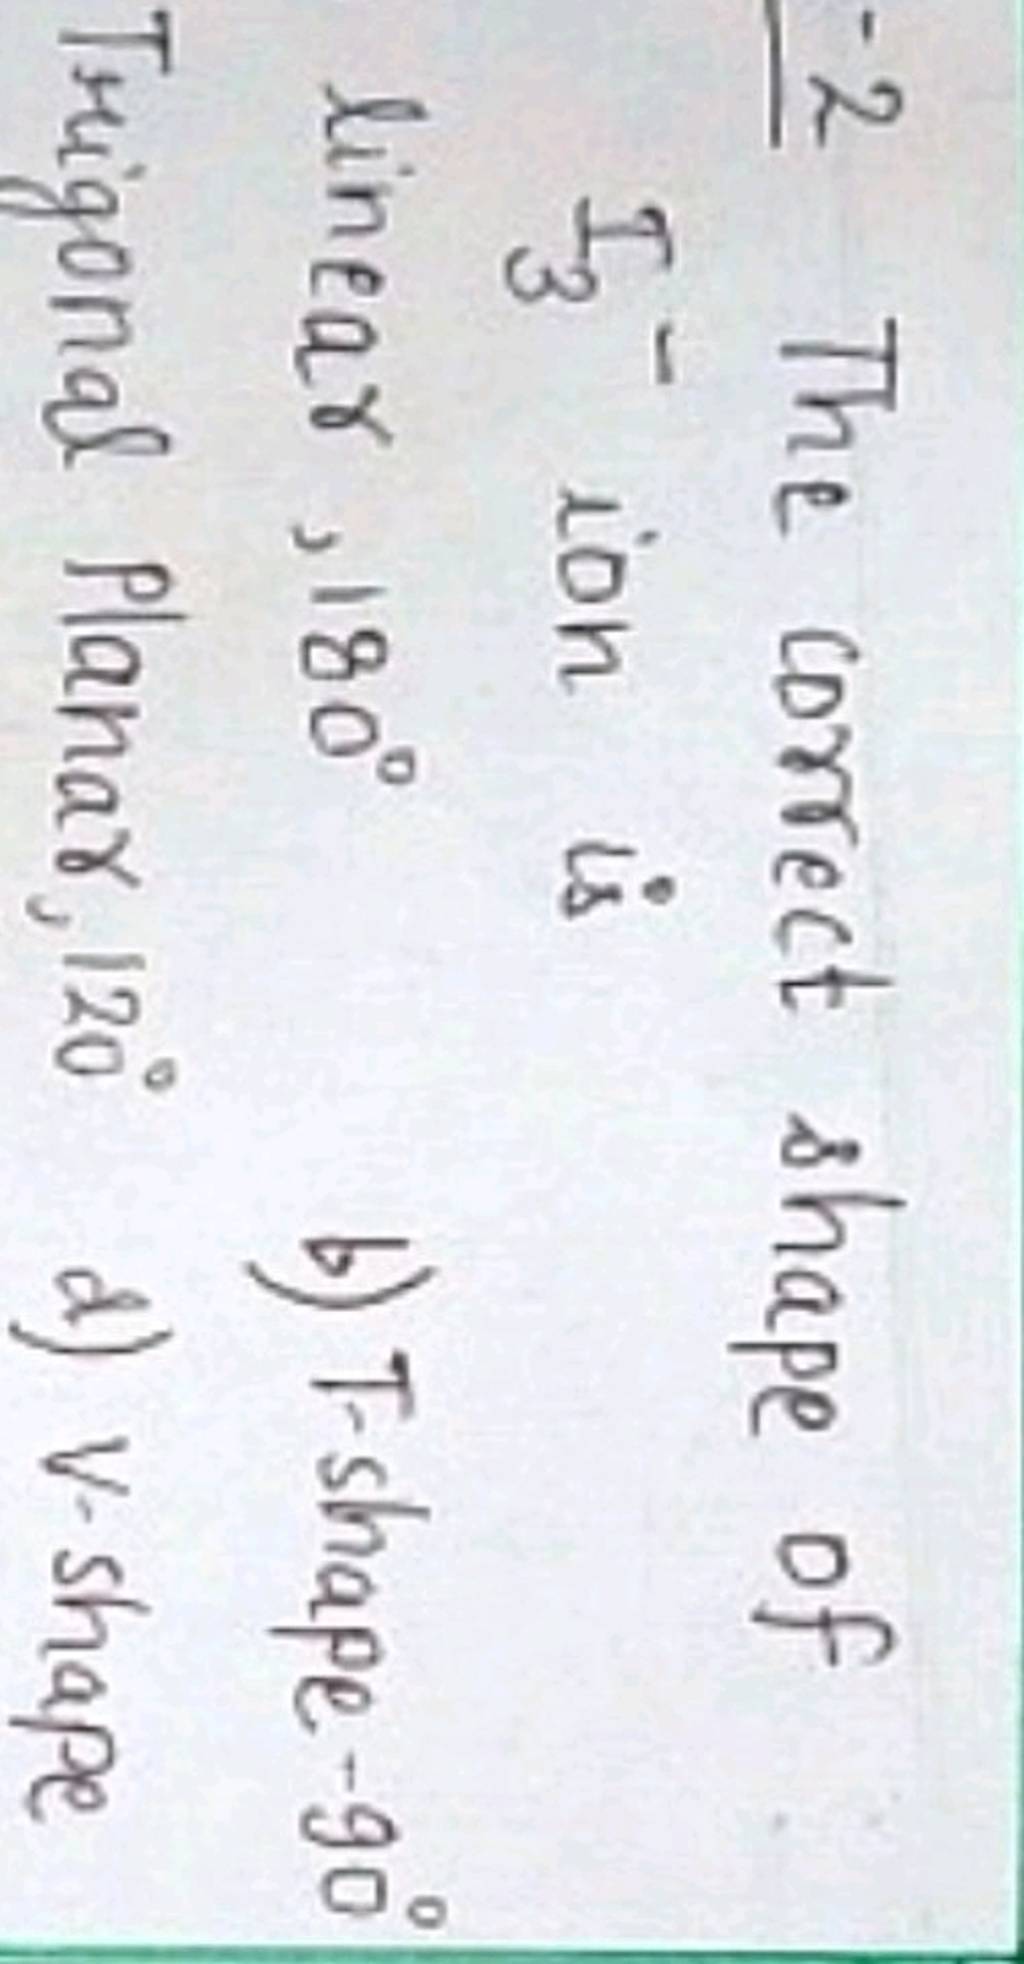 -2 The correct shape of
I₃⁻ ion is
linear, 180° b) T-shape-90°
Trigonal Planar, 120° d) V-shape